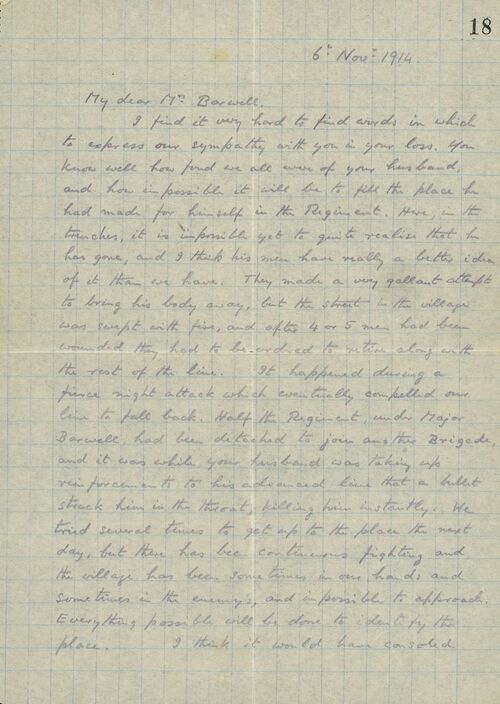 18
6th Novr 1914.
My dear Mrs Barwell.
I find it very hard to find words in which
to express our sympathy with you in your loss. You
know well how fond we all were of your husband,
and how impossible it will be to fill the place he
had made for himself in the Regiment. Here, in the
trenches, it is impossible yet to quite realise that he
has gone, and I think his men have really a better idea
of it than we have. They made a very gallant attempt
to bring his body away, but the street in the village
was swept with fire, and after 4 or 5 men had been
wounded they had to be ordered to retire along with
the rest of the line. It happened during a
fierce night attack which eventually compelled our
line to fall back. Half the Regiment, under Major
Barwell, had been detached to join another Brigade,
and it was while your husband was taking up
reinforcements to his advanced line that a bullet
struck him in the throat, killing him instantly. We
tried several times to get up to the place the next
day, but there has been continuous fighting and
the village has been sometimes in our hands and
sometimes in the enemys, and impossible to approach.
Everything possible will be done to identify the
place. I think it would have consoled